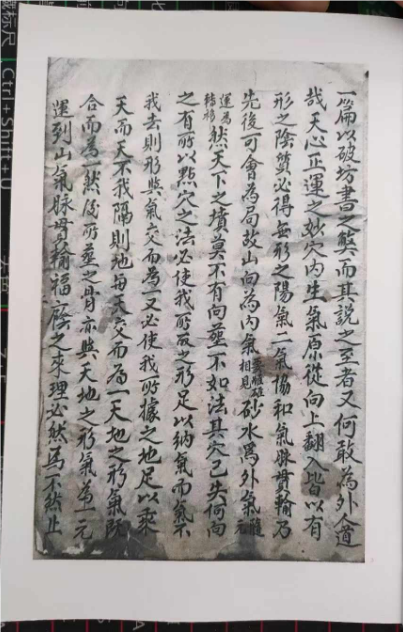 一篇以破坊書之弊而其説之至者又何敢為外人道
哉天心正運之妙穴内生氣原從向上翻入皆以有
形之陰質必得無形之陽氣二氣協和氣脉貫輸乃
先後可會為局故山向為内氣相見砂水為外氣隨元
運為轉移然天下之墳莫不有向葬不如法其穴已失何向
之有所以點穴之法必使我所取之形足以納氣而氣不
我去則形與氣交而為一又必使我所據之地足以乘
天而天不我隔則地與天交而為一天地之形氣既
合而為一然後所葬之骨亦與天地之形氣為一元
運到山氣脉貫輸福廕之來理必然焉不然止
Ctrl+Shift+U